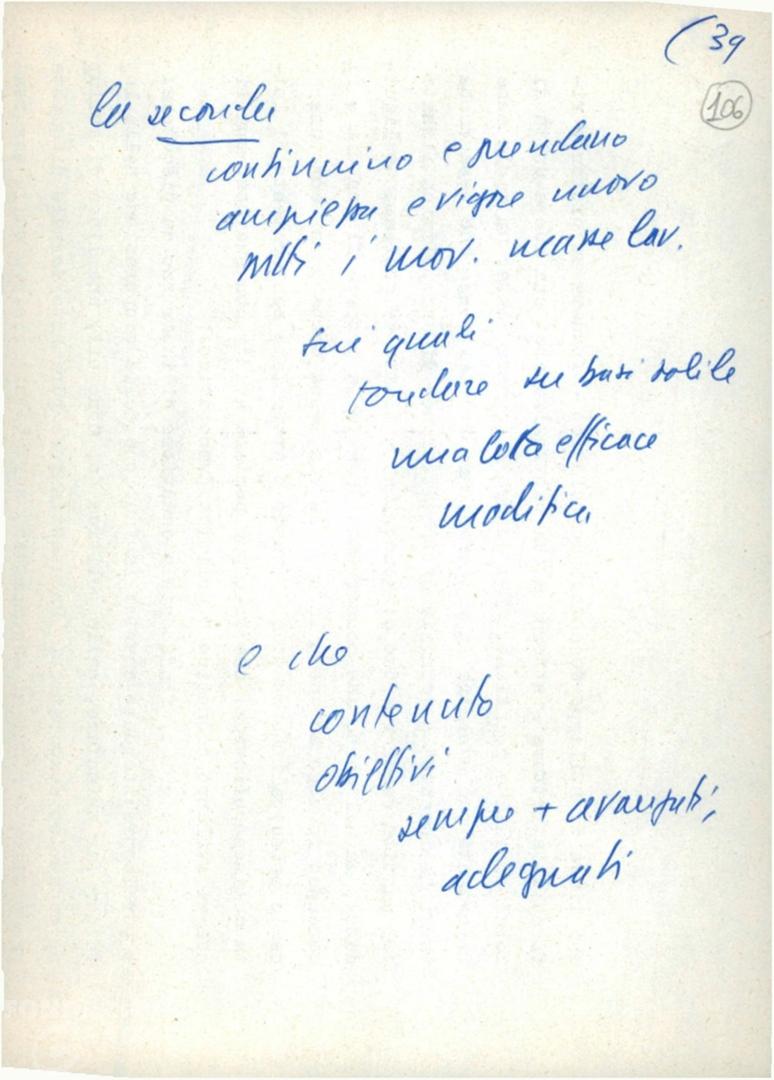 (39
106
la seconda
continuino e prendano
ampiezza e vigore nuovo
tutti i mov. masse lav.
sui quali
fondare su basi solide
una lotta efficace
modifica
e che
contenuto
obiettivi
sempre + avanzati,
adeguati